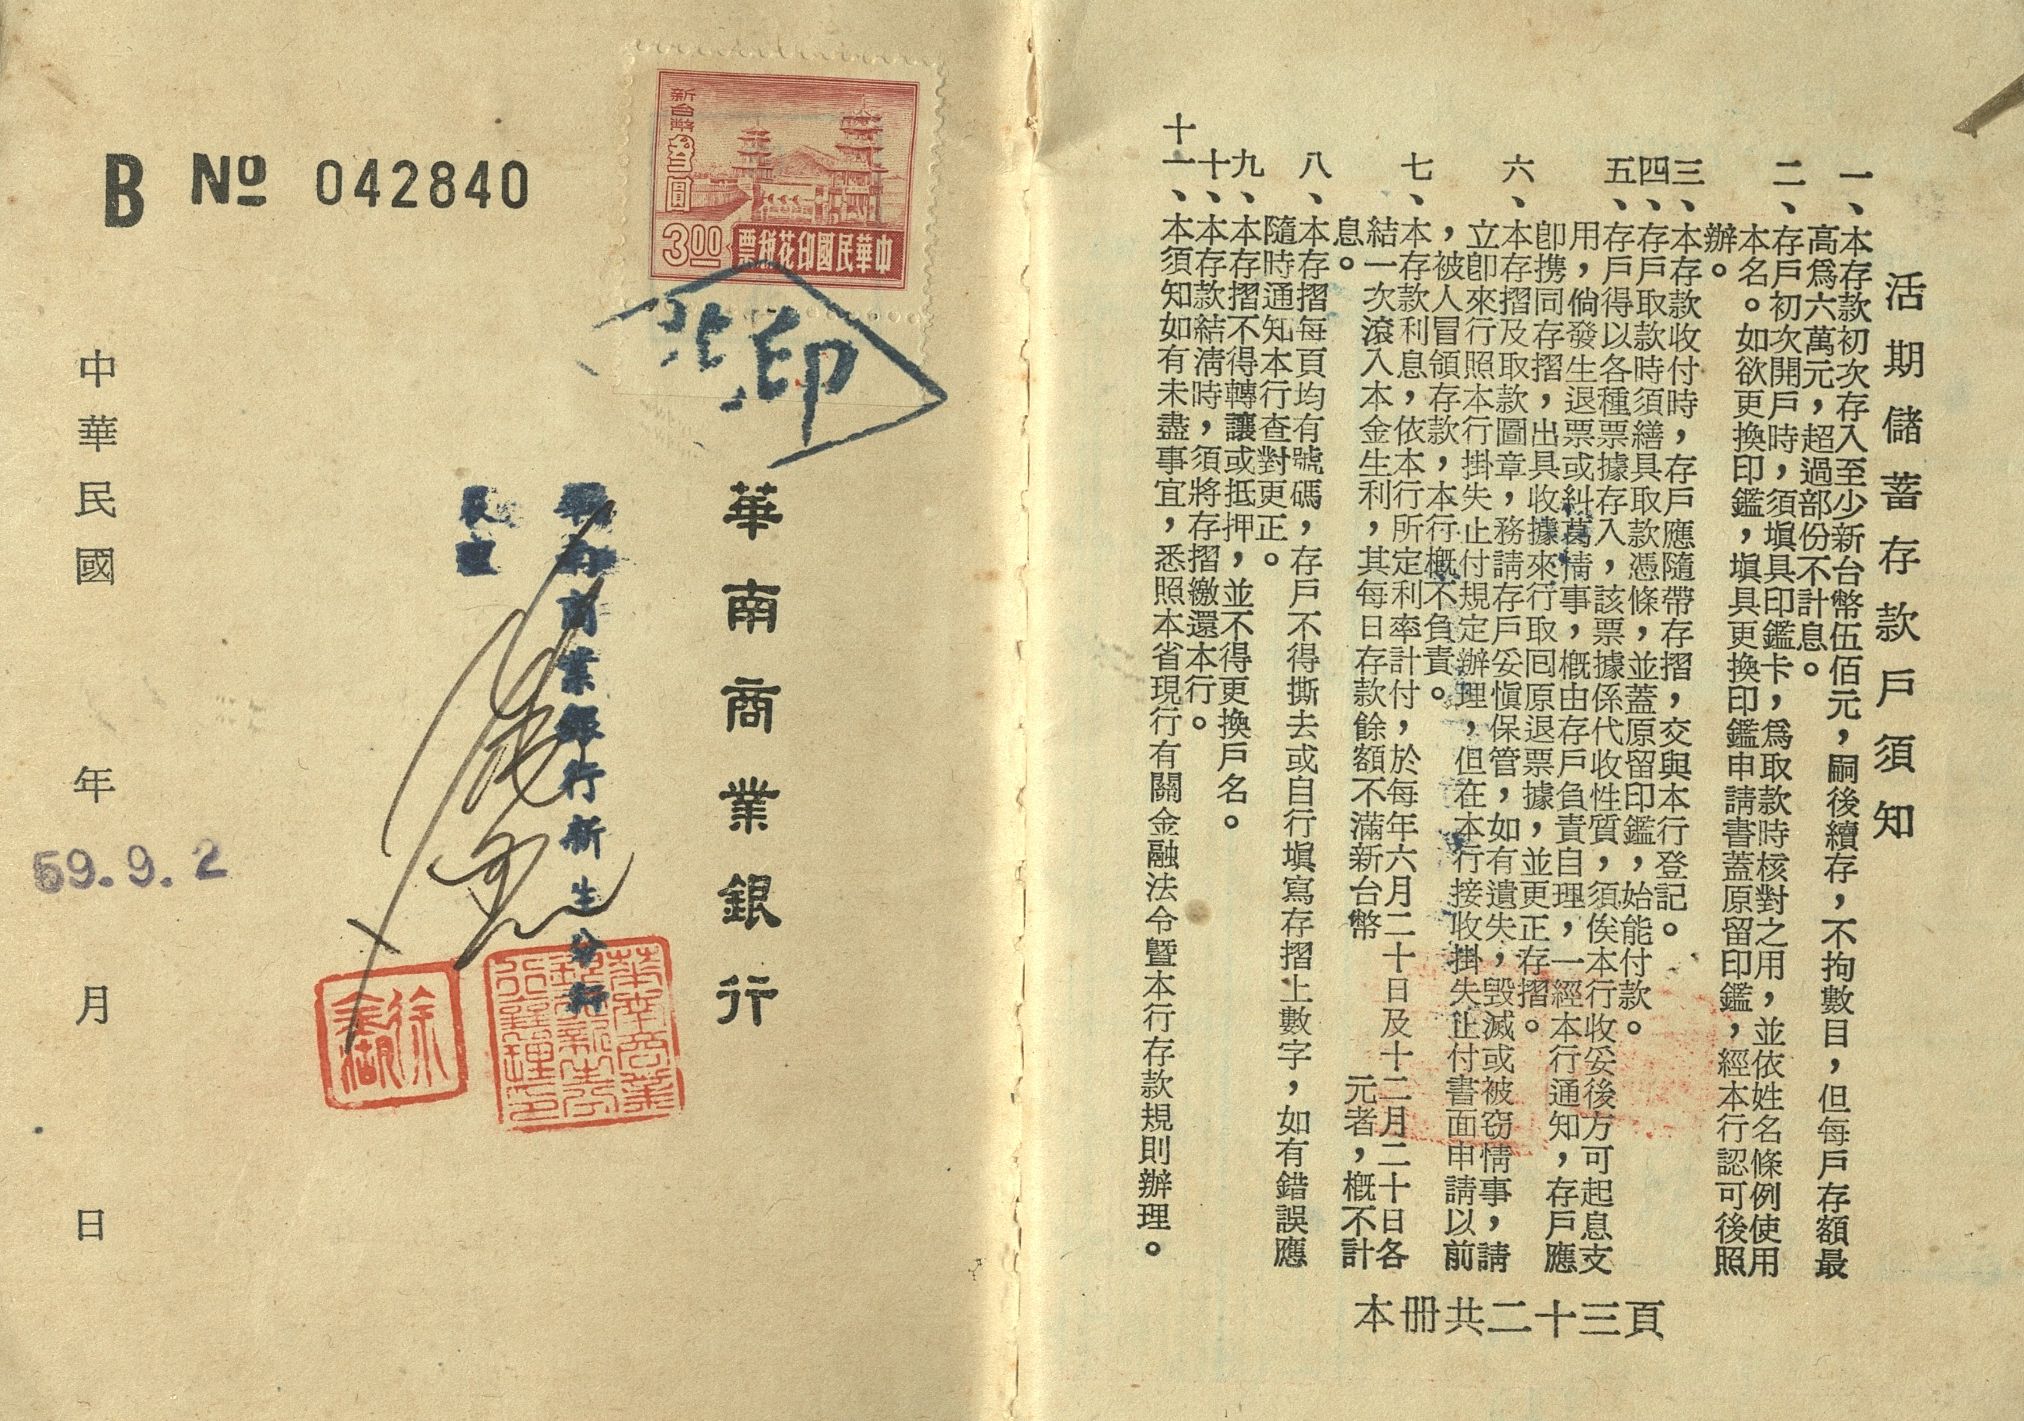 活期儲蓄存款戶須知
一、本存款初次存入至少新台幣伍佰元，嗣後續存，不拘數目，但每戶存額最
高爲六萬元，超過部份不計息。
二、存戶初次開戶時，須塡具印鑑卡，爲取款時核對之用，並依姓名條例使用
本名。如欲更換印鑑，塡具更換印鑑申請書蓋原留印鑑，經本行認可後照
辦。
三、本存款收付時，存戶應隨帶存摺，交與本行登記。
四、存戶取款時須繕具取款憑條，並蓋原留印鑑，始能付款。
五、存戶得以各種票據存入，該票據係代收性質，須俟本行收妥後方可起息支
用，倘發生退票或糾葛情事，槪由存戶負責自理，一經本行通知，存戶應
卽携同存摺，出具收據來行取囘原退票據，並更正存摺。
六、本存摺及取款圖章，務請存戶妥愼保管，如有遺失，毀滅或被窃情事，請
立卽來行照本行掛失止付規定辦理，但在本行接收掛失止付書面申請以前
，被人冒領存款，本行槪不負責。
七、本存款利息，依本行所定利率計付，於每年六月二十日及十二月二十日各
結一次滾入本金生利，其每日存款餘額不滿新台幣　　元者，槪不計
息。
八、本存摺每頁均有號碼，存戶不得撕去或自行塡寫存摺上數字，如有錯誤應
隨時通知本行查對更正。
九、本存摺不得轉讓或抵押，並不得更換戶名。
十、本存款結淸時，須將存摺繳還本行。
十一、本須知如有未盡事宜，悉照本省現行有關金融法令暨本行存款規則辦理。
本冊共二十三頁
B № 042840
新台幣叁圓
3.00
中華民國印花稅票
印
華南商業銀行
華南商業銀行新生分行
華南商業
銀行新生分
行經理印
徐
中華民國　年　月　日
59.9.2